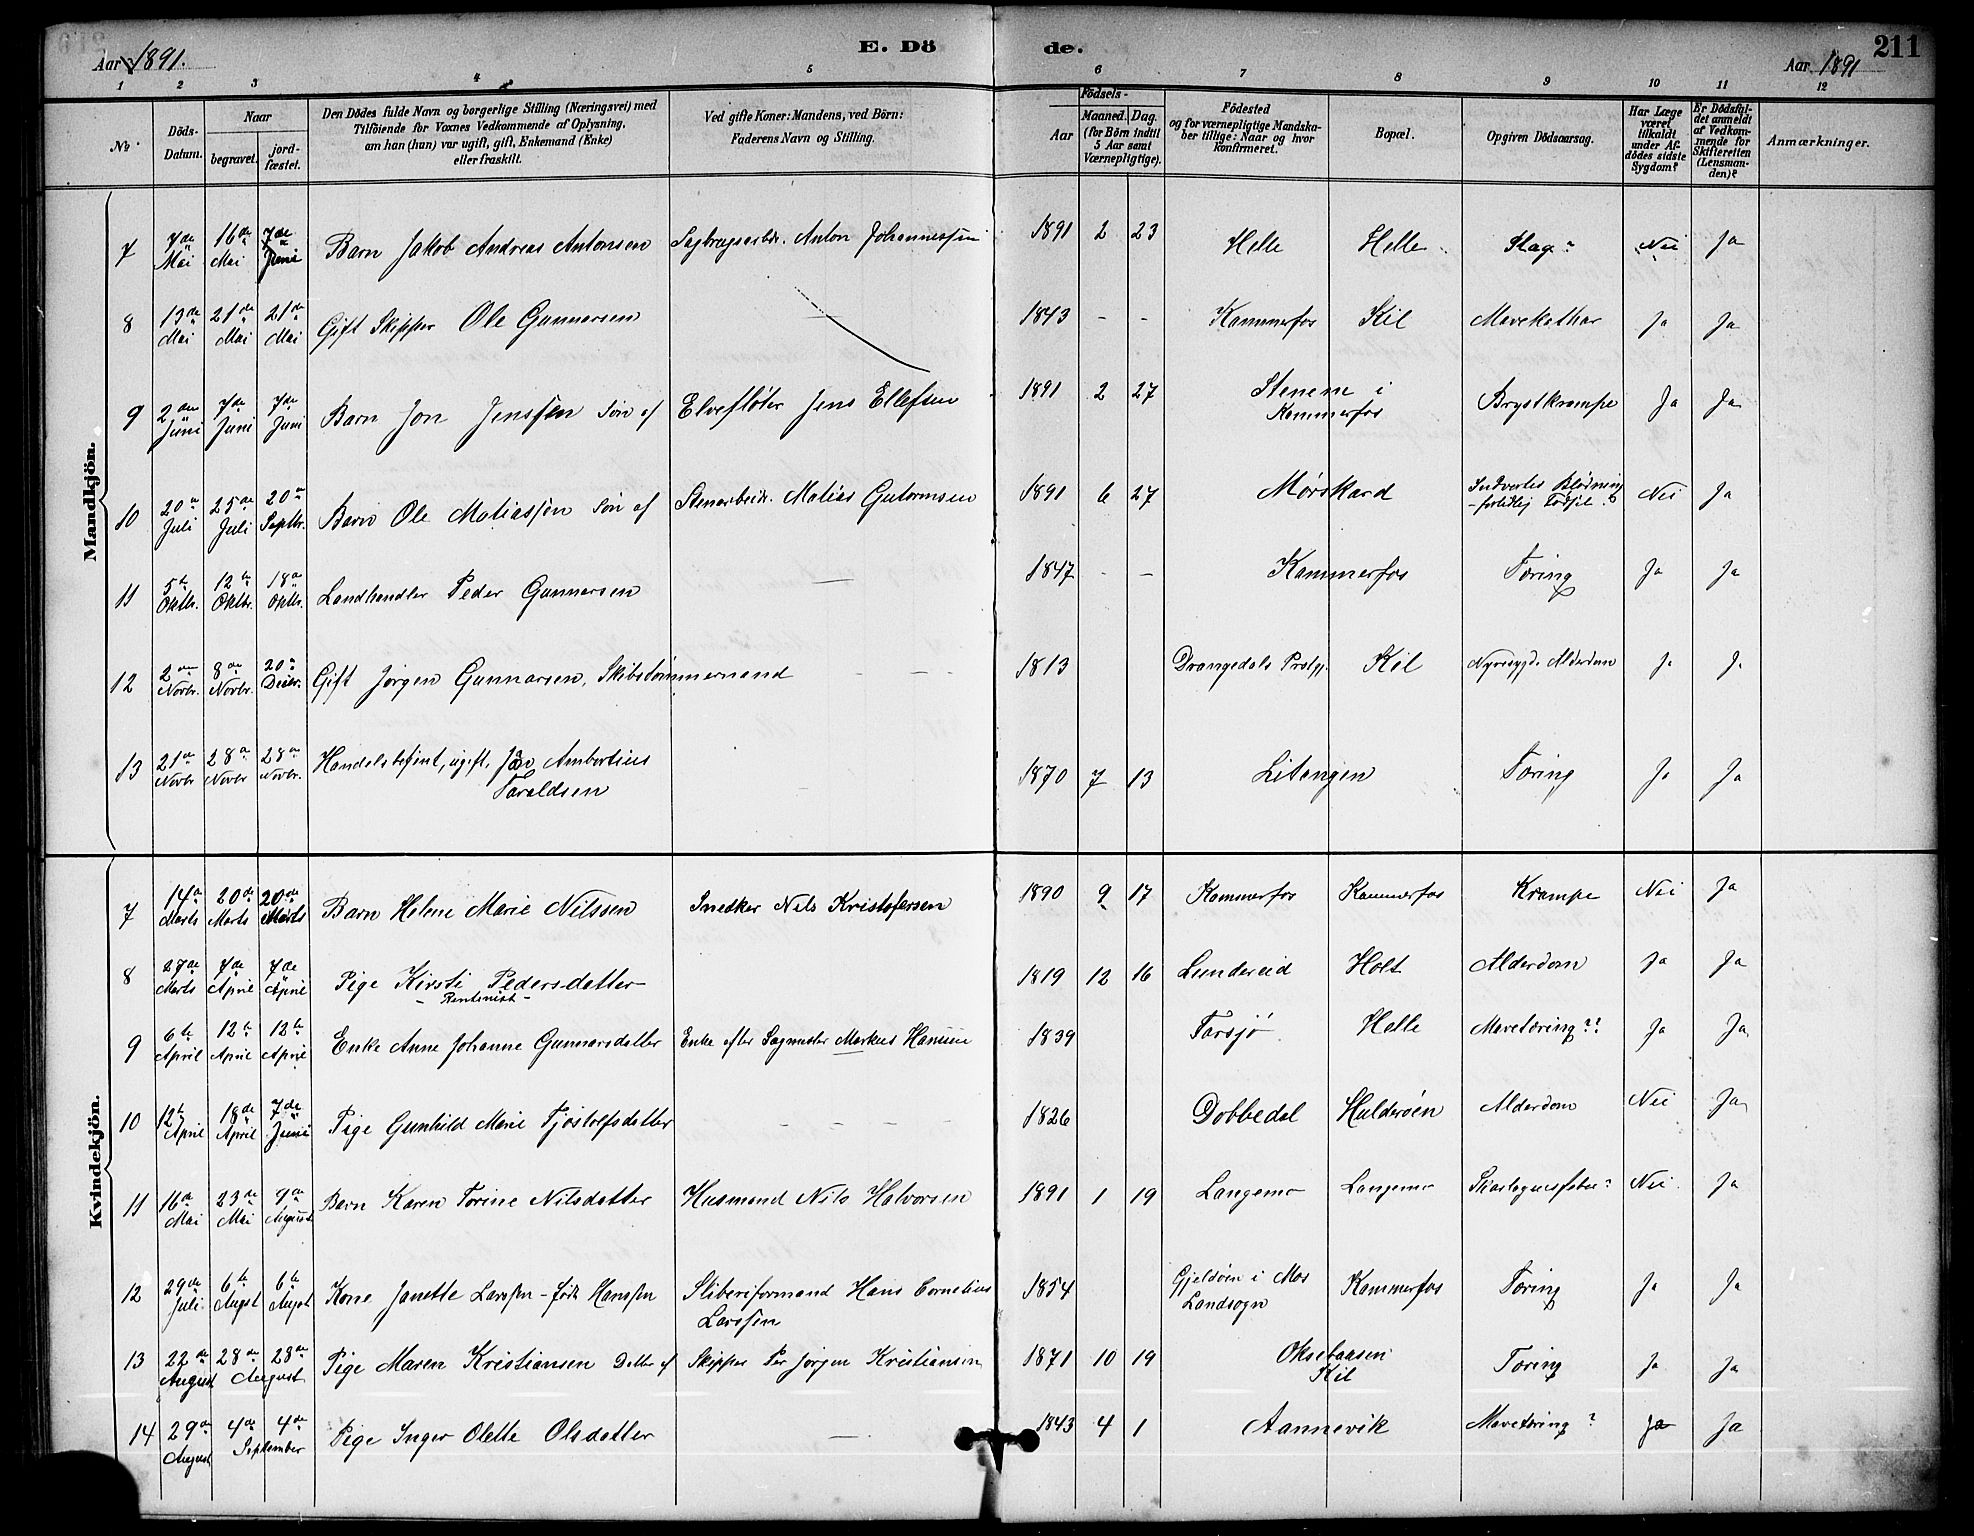 Aar 1891. E. Dö de. Aar 1891 211
1 2 3 4 5 6 7 8 9 10 11 12
No. Döds-Datum. Naar begravet. jord-fæstet.
Den Dödes fulde Navn og borgerlige Stilling (Næringsvei) med
Tilföiende for Voxnes Vedkommende af Oplysning,
om han (hun) var ugift, gift, Enkemand (Enke)
eller fraskilt.
Ved gifte Koner: Mandens, ved Börn:
Faderens Navn og Stilling.
Födsels-
Aar Maaned. Dag.
(for Börn indtil
5 Aar samt
Værnepligtige).
Födested
og for værnepligtige Mandska-
ber tillige: Naar og hvor
konfirmeret.
Bopæl.
Opgiven Dödsaarsag.
Har Læge
været
tilkaldt
under Af-
dödes sidste
Sygdom?
Er Dödsfal-
det anmeldt
af Vedkom-
mende for
Skifteretten
(Lensman-
den)?
Anmærkninger.
Mandkjön.
7 7de Mai 16de Mai 7de Juni Barn Jakob Andreas Antonsen Anton Johannessen 1891 2 23 Helle Helle Slag? Nei Ja
8 13de Mai 21de Mai 21de Mai Gift Skipper Ole Gunnarsen — 1843 - - Kammerfos Kil Mavekathar Ja Ja
9 2den Juni 7de Juni 7de Juni Barn Jon Jenssen Søn af Elvefløter Jens Ellefsen 1891 2 27 Stenene i Kammerfos Brystkrampe Ja Ja
10 20de Juli 25de Juli 20de Septbr. Barn Ole Matiassen Søn af Stenarbeidr. Matias Gutormsen 1891 6 27 Mørskard Indvortes Blødning Nei Ja
11 5te Oktbr. 12te Oktbr. 18de Oktbr. Landhandler Peder Gunnarsen — 1847 - - Kammerfos Tæring Ja Ja
12 2den Novbr. 8de Novbr. 20de Decbr. Gift Jørgen Gunnarsen, Skibstømmermand - - - 1813 Drangedals Prstgj. Kil Nyresygd. Alderdom Ja Ja
13 21de Novbr 28de Novbr 28de Novbr. Handelsbetjent, ugift, Jan Ambortius
Taraldsen 1870 7 13 Litangen Tæring Ja Ja
Kvindekjön.
7 14de Marts 20de Marts 20de Marts Barn Helene Marie Nilssen Snedker Nils Kristofersen 1890 9 17 Kammerfos Kammerfos Krampe Nei Ja
8 27de Marts 7de April 7de April Pige Kirsti Pedersdatter
- Rentenist - 1819 12 16 Lundereid Holt Alderdom Ja Ja
9 6te April 12te April 12te April Enke Anne Johanne Gunnarsdatter Enke efter Sagmester Markus Hansen 1839 Farsjø Helle Mavetæring?? Ja Ja
10 12te April 18de April 7de Juni Pige Gunhild Marie Tjostolfsdatter - - - - - 1826 Dobbedal Hulderøen Alderdom Nei Ja
11 16de Mai 23de Mai 9de August Barn Karen Torine Nilsdatter Husmand Nils Halvorsen 1891 1 19 Langemo Langemo Skarlagensfeber? Nei Ja
12 29de Juli 6te Augst 6te Augst Kone Janette Larssen - født Hanssen Sliberiformand Hans Cornelius
Larssen 1854 Gjeldøen i Mos
Landsogn Kammerfos Tæring Ja Ja
13 22de August 28de 28de August Pige Maren Kristiansen Datter af Skipper Per Jørgen Kristiansen 1871 10 19 Oksebaasen
Kil Tæring Ja Ja
14 29de August 4de 4de September Pige Inger Olette Olsdatter — 1843 4 1 Aannevik Mavetæring? Ja Ja